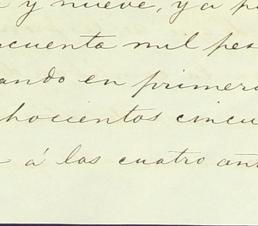 y nueve, ya p
cuenta mil pes
ando en primera
hocientos cincu
á las cuatro ant